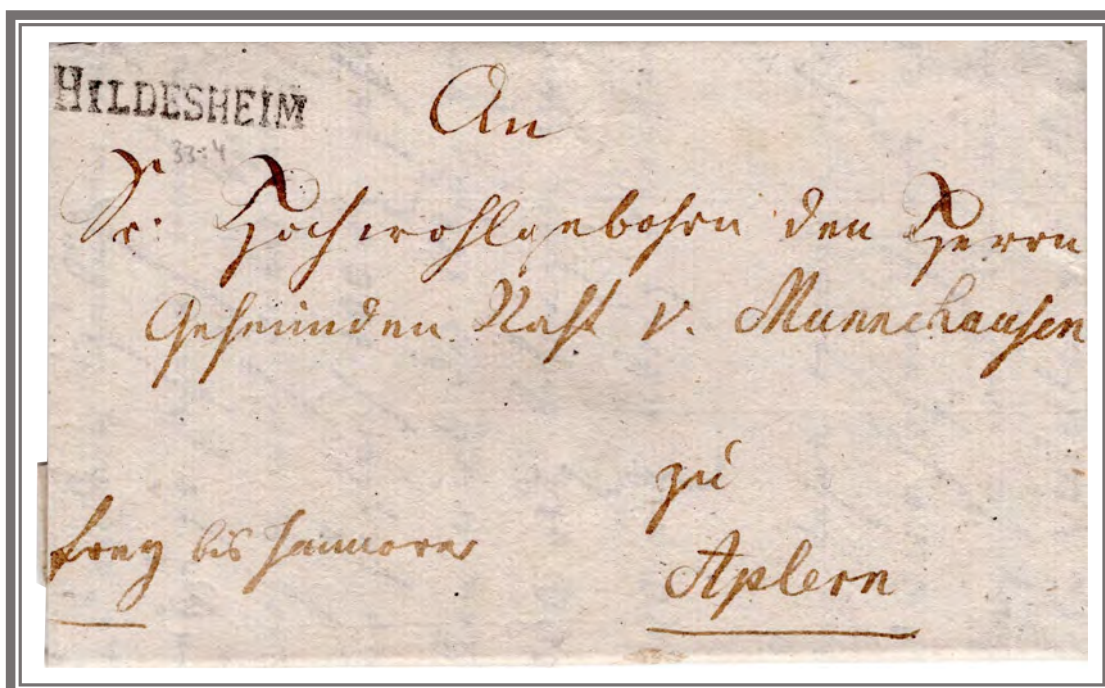 HILDESHEIM
33:4
An
Sr: Hochwohlgebohrn den Herrn
Geheimden Raht v. Munnchausen
zu
Aplern
frey bis Hannover